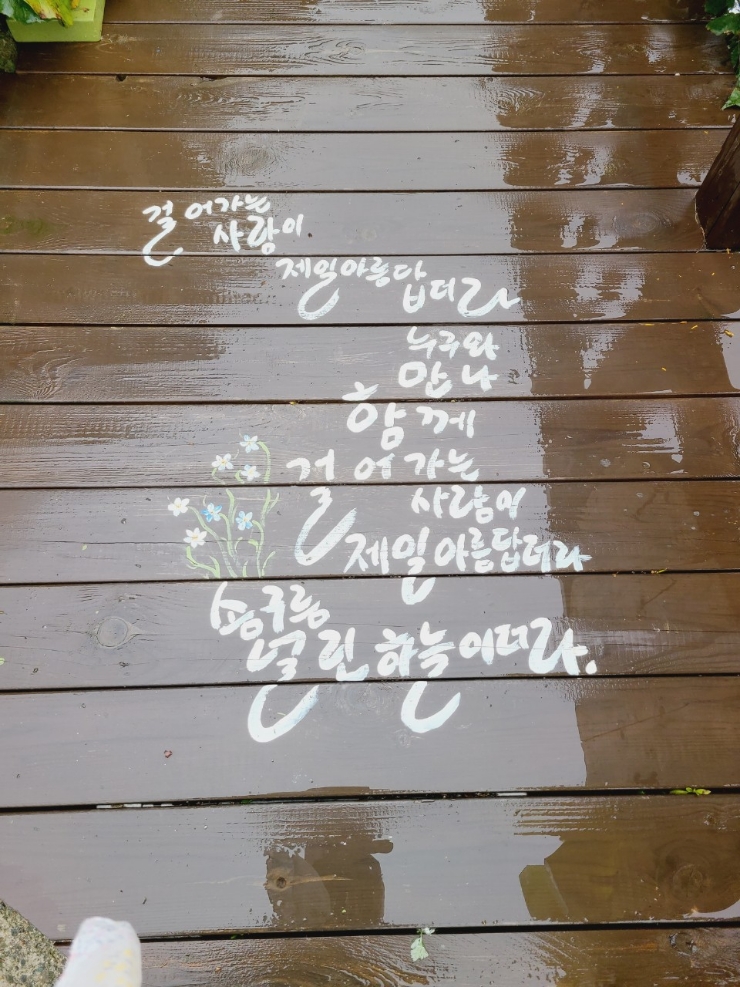 걸어가는
사람이
제일 아름답더라
누구와
만나
함께
걸어가는
사람이
제일 아름답더라
솜구름
널린 하늘이더라.